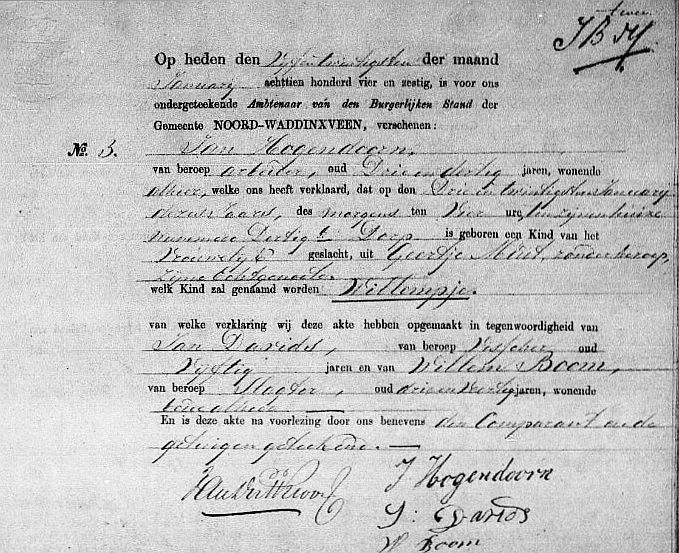 twee
Op heden den Vyfentwintigsten der maand
January achttien honderd vier en zestig, is voor ons
ondergeteekende Ambtenaar van den Burgerlijken Stand der
Gemeente NOORD-WADDINXVEEN, verschenen:
No. 3. Jan Hogendoorn,
van beroep arbeider, oud Drieendertig jaren, wonende
alhier, welke ons heeft verklaard, dat op den Drieentwintigsten January
dezes Jaars, des morgens ten Vier ure, ten zynen huize
nummero Dertig Dorp is geboren een Kind van het
Vrouwelyk geslacht, uit Geertje Mint, zonder beroep,
zyne echtgenoote.
welk Kind zal genaamd worden Willempje.
van welke verklaring wij deze akte hebben opgemaakt in tegenwoordigheid van
Jan Davids, van beroep Visscher oud
Vyftig jaren en van Willem Boom,
van beroep Slagter, oud drieenveertig jaren, wonende
beide alhier
En is deze akte na voorlezing door ons benevens den Comparant en de
getuigen geteekend.
J Hogendoorn
J: Davids
W Boom